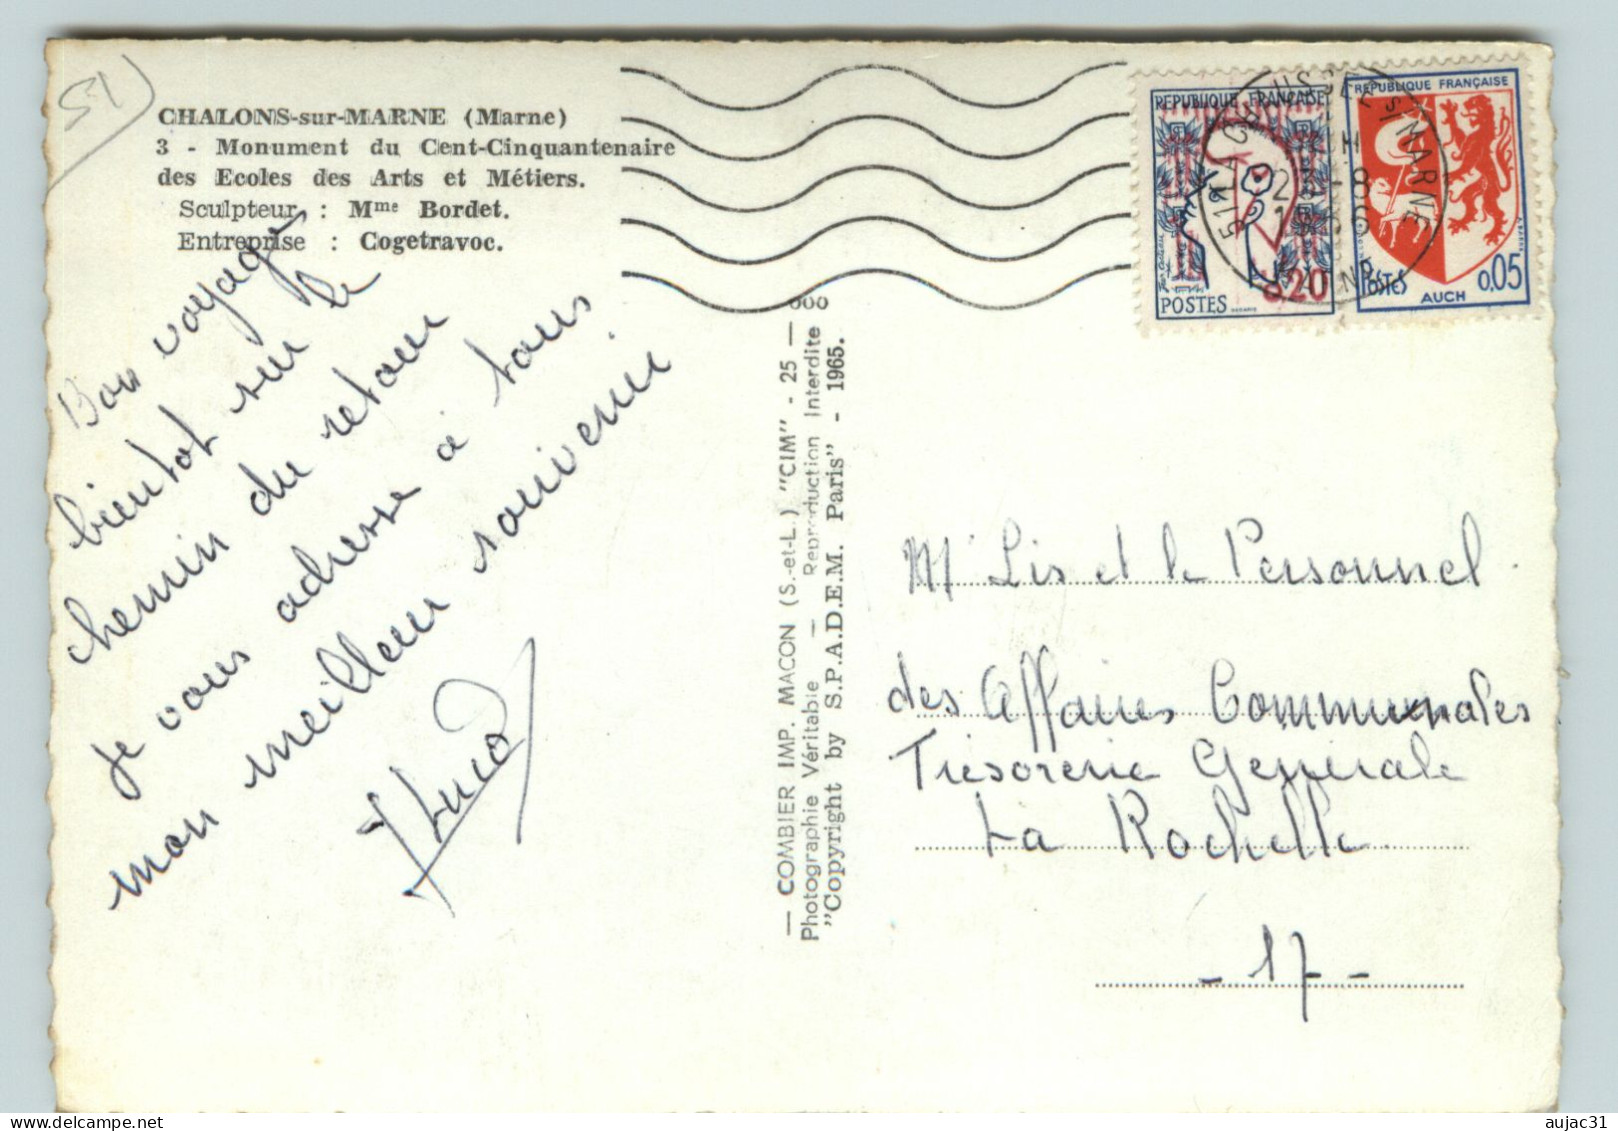 51
CHALONS-sur-MARNE (Marne)
3 - Monument du Cent-Cinquantenaire
des Ecoles des Arts et Métiers.
Sculpteur : Mme Bordet.
Entreprise : Cogetravoc.
Bon voyage
bientot sur le
chemin du retour
je vous adresse à tous
mon meilleur souvenir
— COMBIER IMP. MACON (S.-et-L.) "CIM" - 25 — 000
Photographie Véritable — Reproduction Interdite
"Copyright by S.P.A.D.E.M. Paris" - 1965.
REPUBLIQUE FRANÇAISE
0.20
POSTES
REPUBLIQUE FRANÇAISE
POSTES
0,05
AUCH
51 LA CHAUSSEE S/ MARNE
23-8
1966
MARNE
Mr Lis et le Personnel
des Affaires Communales
Trésorerie Générale
La Rochelle
- 17 -
aujac31